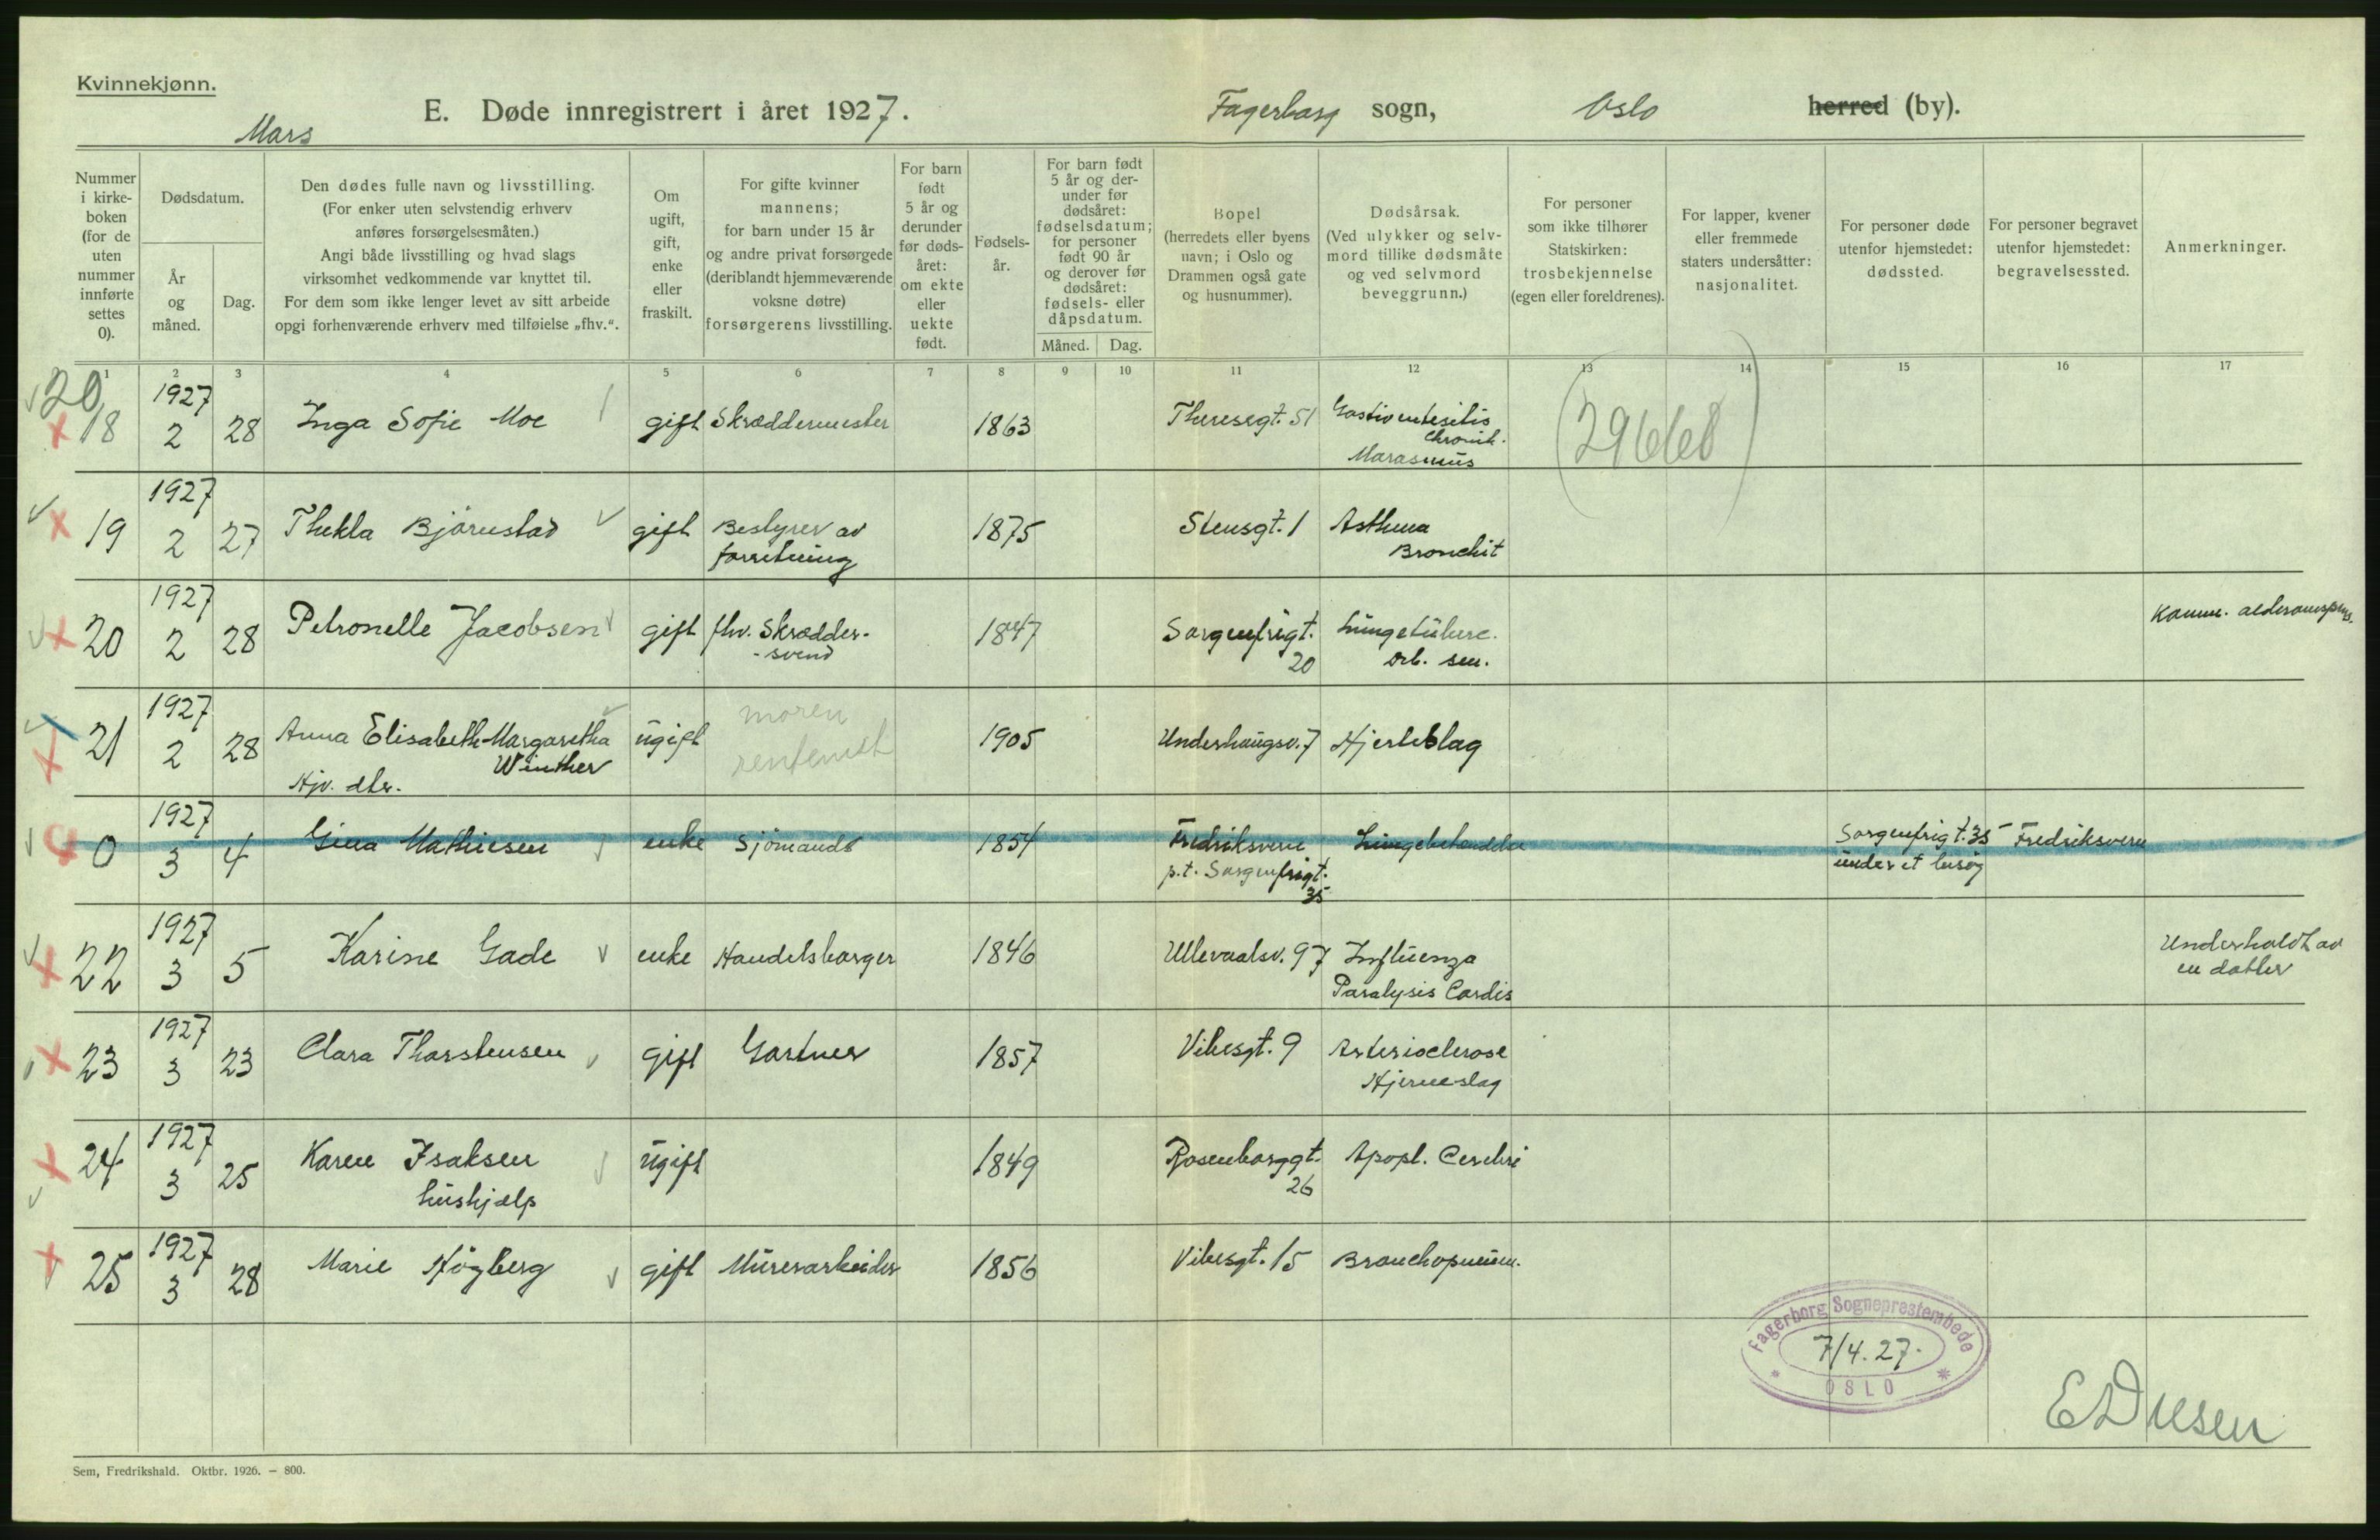 Kvinnekjønn.
E. Døde innregistrert i året 1927.
Fagerborg sogn, Oslo herred (by).
Mars
Nummer i kirke-boken (for de uten nummer innførte settes 0).
Dødsdatum.
År og måned.
Dag.
Den dødes fulle navn og livsstilling.
(For enker uten selvstendig erhverv
anføres forsørgelsesmåten.)
Angi både livsstilling og hvad slags
virksomhet vedkommende var knyttet til.
For dem som ikke lenger levet av sitt arbeide
opgi forhenværende erhverv med tilføielse „fhv.“.
Om ugift, gift, enke eller fraskilt.
For gifte kvinner
mannens;
for barn under 15 år
og andre privat forsørgede
(deriblandt hjemmeværende
voksne døtre)
forsørgerens livsstilling.
For barn født 5 år og derunder før døds-året: om ekte eller uekte født.
Fødsels-år.
For barn født 5 år og der-under før dødsåret: fødselsdatum; for personer født 90 år og derover før dødsåret: fødsels- eller dåpsdatum.
Måned. Dag.
Bopel
(herredets eller byens
navn; i Oslo og
Drammen også gate
og husnummer).
Dødsårsak.
(Ved ulykker og selv-
mord tillike dødsmåte
og ved selvmord
beveggrunn.)
For personer
som ikke tilhører
Statskirken:
trosbekjennelse
(egen eller foreldrenes).
For lapper, kvener
eller fremmede
staters undersåtter:
nasjonalitet.
For personer døde
utenfor hjemstedet:
dødssted.
For personer begravet
utenfor hjemstedet:
begravelsessted.
Anmerkninger.
1 2 3 4 5 6 7 8 9 10 11 12 13 14 15 16 17
20
18 1927 2 28 Inga Sofie Moe gift Skræddermester 1863 Theresegt. 51 Gastroenteritis
chronik.
Marasmus
(29668)
19 1927 2 27 Thekla Bjørnstad gift Bestyrer av
forretning 1875 Stensgt. 1 Asthma
Bronchit
20 1927 2 28 Petronelle Jacobsen gift fhv. Skrædder-
-svend 1847 Sorgenfrigt.
20 Lungetuberc.
Deb. sen. Komm. alderomspens.
21 1927 2 28 Anna Elisabeth Margaretha
Winther
Hjv. dtr. ugift moren
rentenist 1905 Underhaugsv. 7 Hjerteslag
0 1927 3 4 Gina Mathiesen enke Sjömands 1854 Fredriksvern
p.t. Sorgenfrigt.
35 Sorgenfrigt. 35
under et besøg Fredriksvern
22 1927 3 5 Karine Gade enke Handelsborger 1846 Ullevaalsv. 97 Influenza
Paralysis Cordis Underholdt av
en datter
23 1927 3 23 Clara Thorstensen gift Gartner 1857 Vibesgt. 9 Arteriosclerose
Hjerneslag
24 1927 3 25 Karen Isaksen
hushjælp ugift 1849 Rosenborggt.
26 Apopl. Cerebri
25 1927 3 28 Marie Högberg gift Murerarbeider 1856 Vibesgt. 15 Bronchopneum.
Fagerborg Sogneprestembede
7/4.27.
OSLO
Sem, Fredrikshald. Oktbr. 1926. — 800.